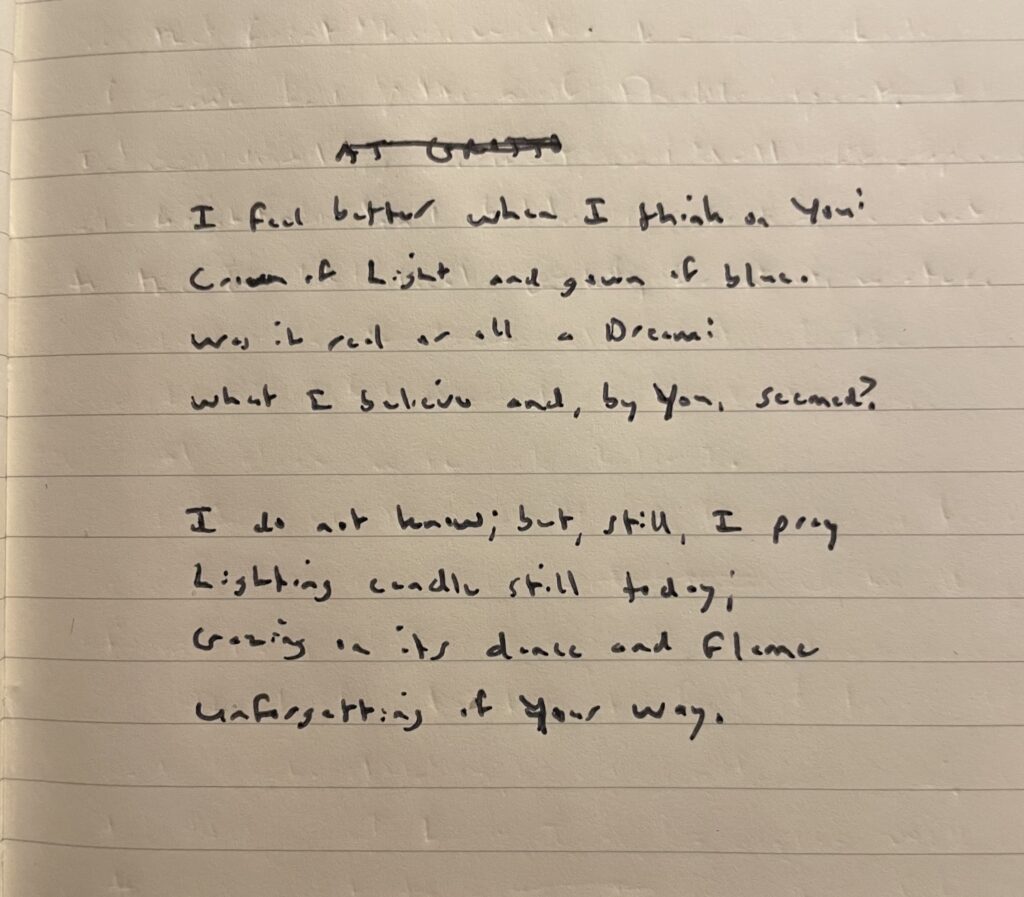 AT
I feel better when I think on You:
Crown of Light and gown of blue.
Was it real or all a Dream:
What I believe and, by You, seemed?
I do not know; but, still, I pray
Lighting candle still today;
Gazing on its dance and flame
Unforgetting of Your way.